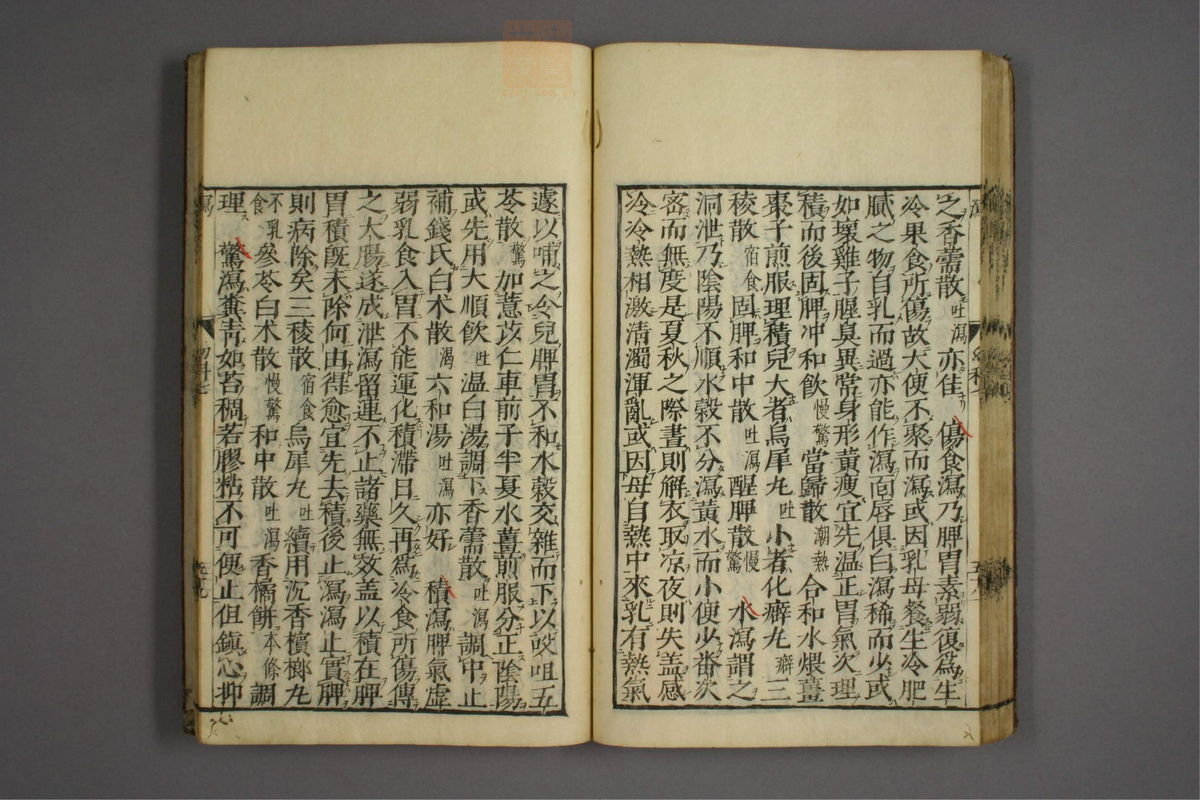 之香薷散吐瀉亦佳 傷食瀉乃脾胃素弱復爲生
冷果食所傷故大便不聚而瀉或因乳母餐生冷肥
膩之物自乳而過亦能作瀉面唇俱白瀉稀而少或
如壞雞子腥臭異常身形黃瘦宜先溫正胃氣次理
積而後固脾冲和飲慢驚當歸散潮熱合和水煨薑
棗子煎服理積兒大者烏犀丸吐小者化癖丸癖三
稜散宿食固脾和中散吐瀉醒脾散慢驚 水瀉謂之
洞泄乃陰陽不順水穀不分瀉黃水而小便少番次
密而無度是夏秋之際晝則解衣取凉夜則失盖感
冷冷熱相激清濁渾亂或因母自熱中來乳有熱氣
遽以哺之令兒脾胃不和水穀交雜而下以㕮咀五
苓散驚加薏苡仁車前子半夏水薑煎服分正陰陽
或先用大順飲吐溫白湯調下香薷散吐瀉調中止
補錢氏白术散渴六和湯吐瀉亦好 積瀉脾氣虛
弱乳食入胃不能運化積滯日久再爲冷食所傷傳
之大腸遂成泄瀉留連不止諸藥無效盖以積在脾
胃積旣未除何由得愈宜先去積後止瀉瀉止實脾
則病除矣三稜散宿食烏犀丸吐續用沉香檳榔丸
不乳食參苓白术散慢驚和中散吐瀉香橘餅本條調
理 驚瀉糞靑如苔稠若膠粘不可便止但鎭心抑